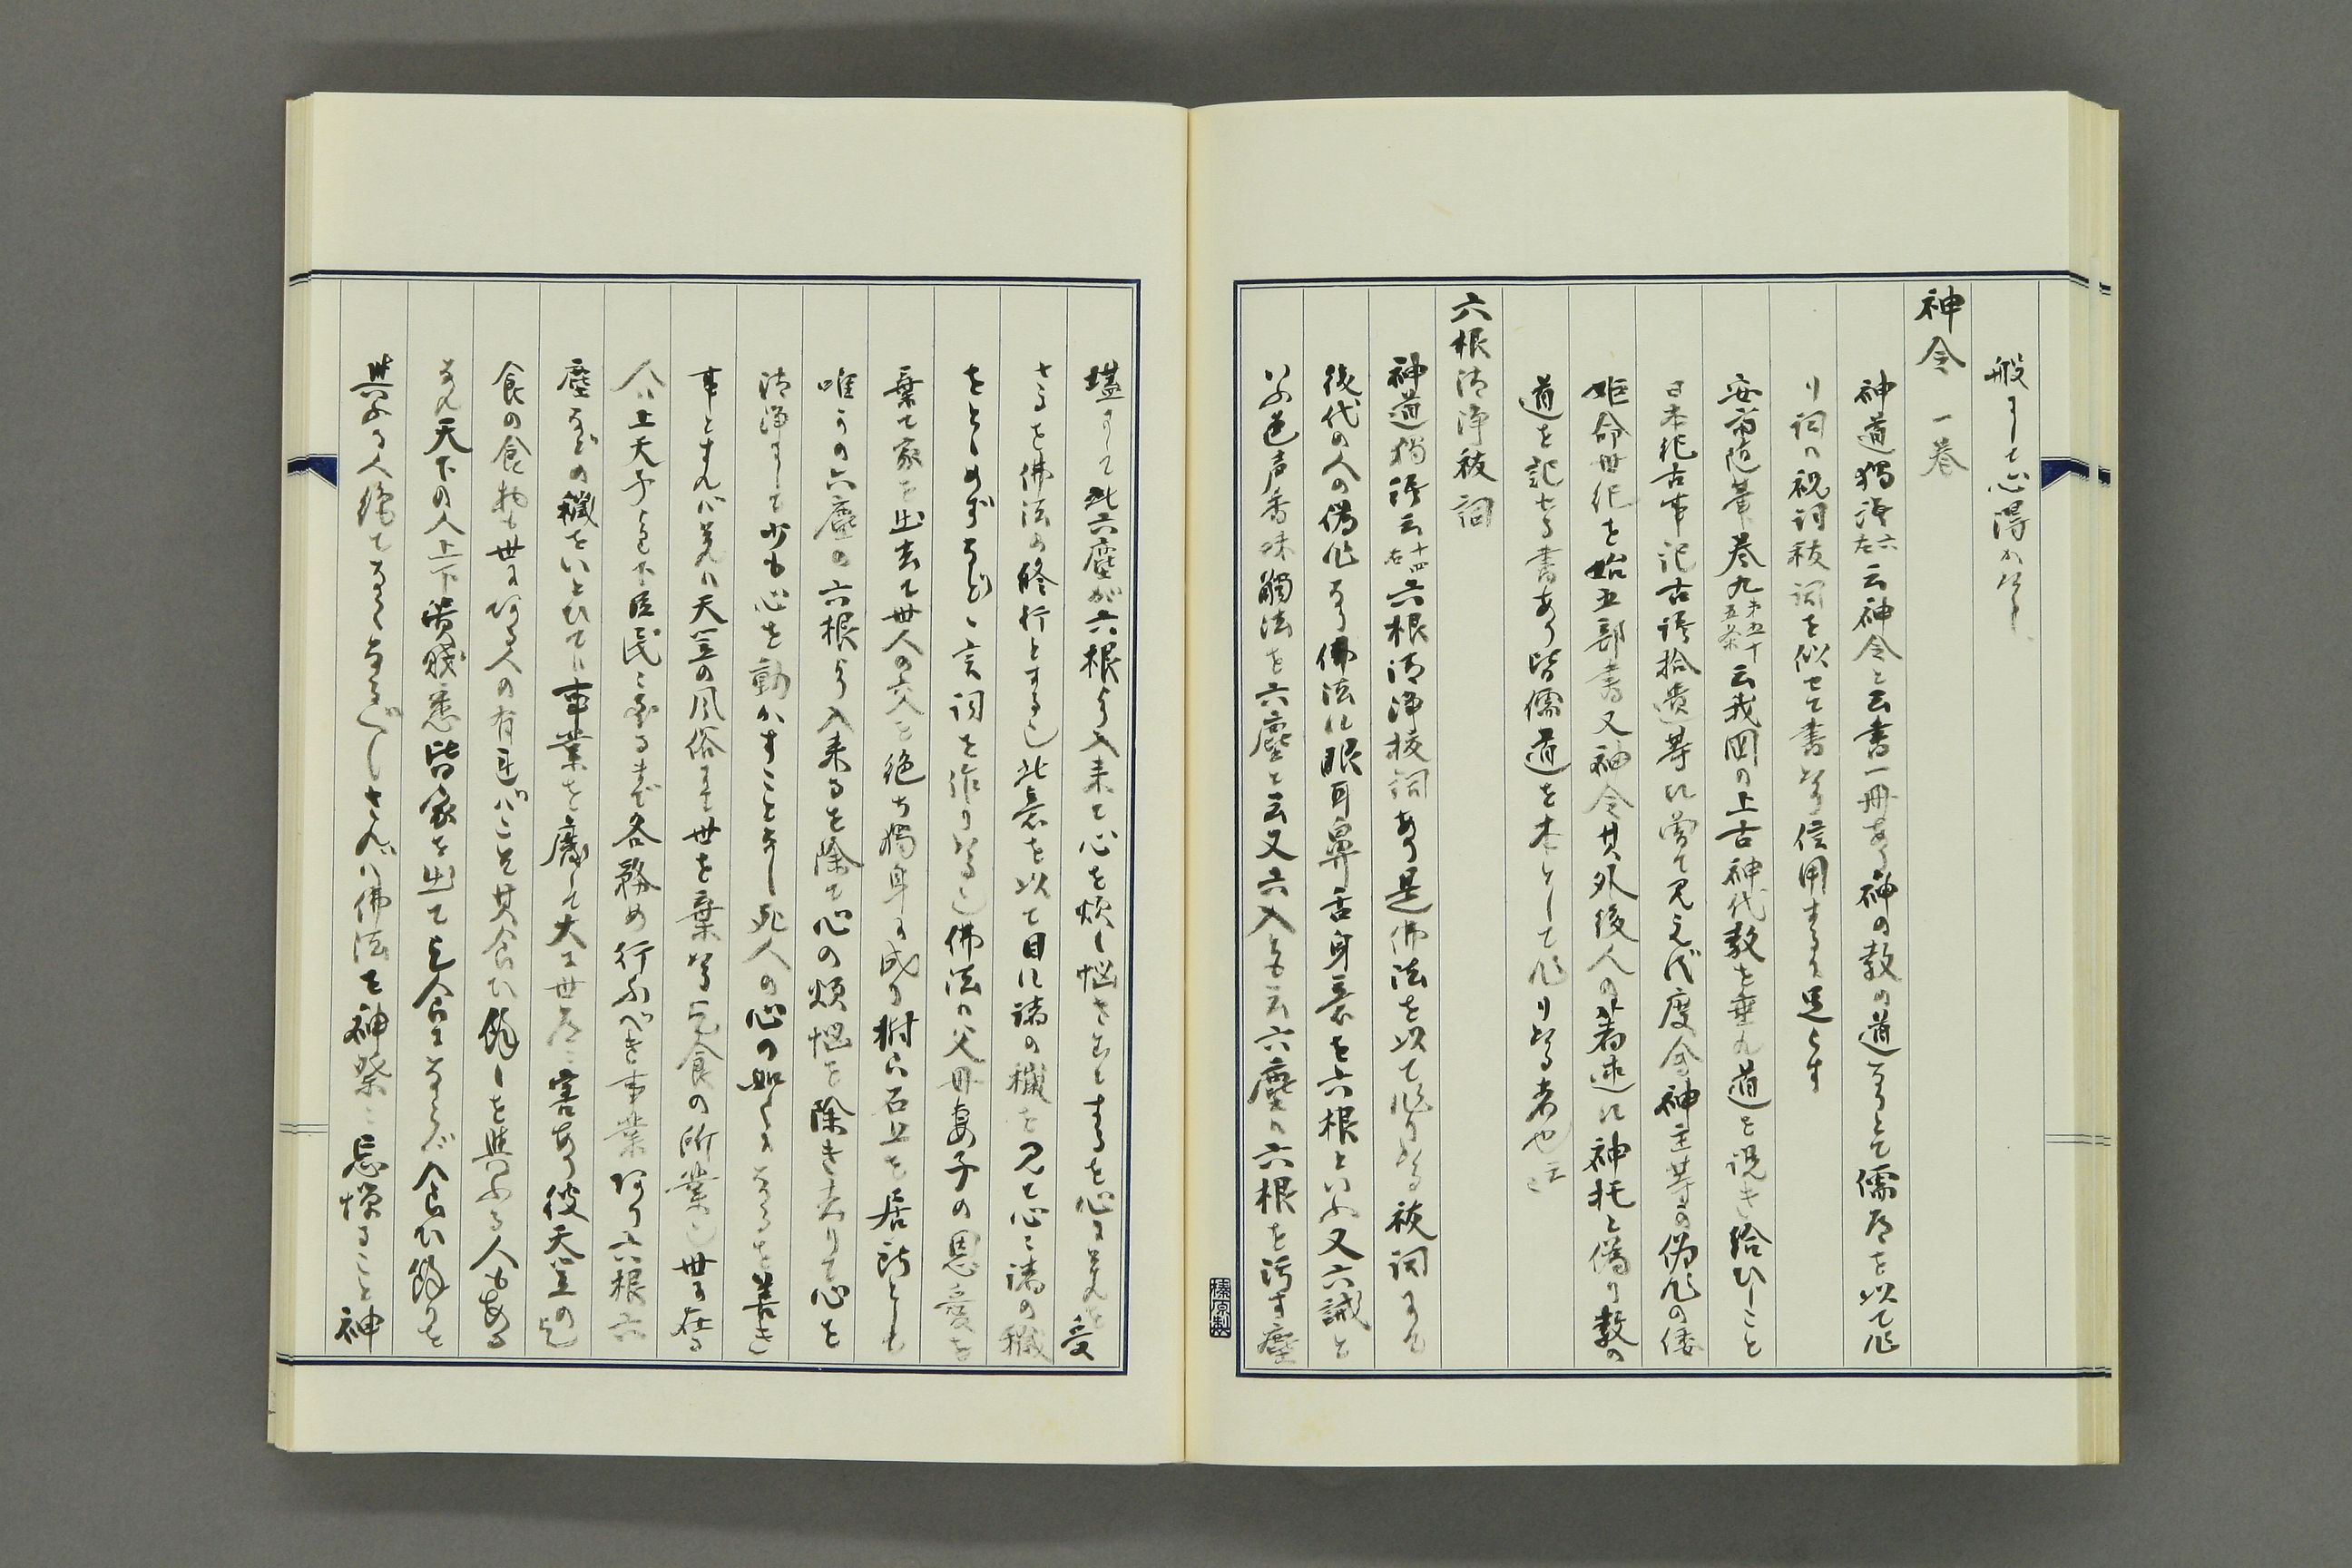 般にして心得かたし
神令 一巻
神道獨語六左云神令と云書一冊あり神の教の道なりとて儒道を以て作
り詞は祝詞祓詞を似せて書たり信用するに足らす
安斎随筆巻九第五十五条云我国の上古神代教を垂れ道を説き給ひしこと
日本紀古事記古語拾遺等に曽て見えず度会神主等の偽作の倭
姫命世紀を始五部書又神令其外後人の著述に神托と偽り教の
道を記せる書あり皆儒道を本として作りたる者也云々
六根清浄祓詞
神道獨語云十四右六根清浄祓詞あり是佛法を以て作りたる祓詞にて
後代の人の偽作なり佛法に眼耳鼻舌身意を六根といふ又六識と
いふ色声香味觸法を六塵と云又六入とも云六塵は六根を汚す塵
埃にて此六塵が六根より入来て心を煩し悩さむとするを心に是を受
さるを佛法の修行とする也此意を以て目に諸の穢を見て心に諸の穢
をとゝめずなどゝ言詞を作りたる也佛法は父母妻子の恩愛を
棄て家を出去て世人の交を絶ち獨身に成り樹下石上を居所とし
唯かの六塵の六根より入来るを除て心の煩悩を除き去りて心を
清浄にして少も心を動かすことなし死人の心の如くになるを善き
事とすんば是れ天竺の風俗にて世を棄たる乞食の所業也世に在る
人は上天子より下臣民に至るまで各務め行ふべき事業あり六根六
塵などの穢をいとひては事業を廃して大に世道に害あり彼天竺の乞
食の食物も世にある人の有ればこそ其食ひ餘しを與ふる人もある
なれ天下の人上下貴賤悉皆家を出て乞食にならば食ひ餘りを
與ふる人絶てなくなるべしされば佛法を神祭に忌憚ること神
榛原製